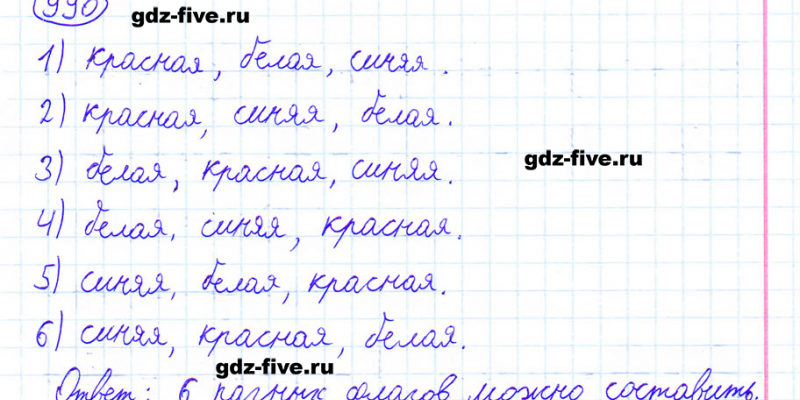 990
gdz-five.ru
1) красная, белая, синяя.
2) красная, синяя, белая.
3) белая, красная, синяя.
gdz-five.ru
4) белая, синяя, красная.
5) синяя, белая, красная.
6) синяя, красная, белая.
gdz-five.ru
Ответ: 6 разных флагов можно составить.